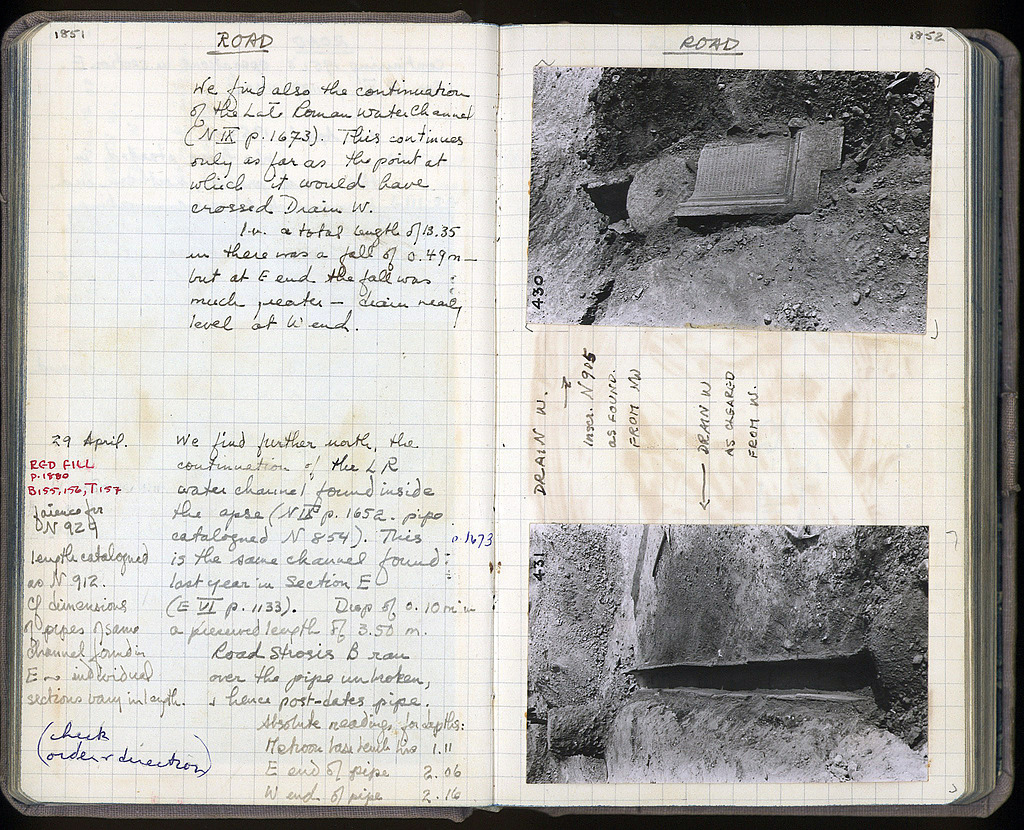 1851
ROAD
We find also the continuation
of the Late Roman water channel
(N IX p. 1673). This continues
only as far as the point at
which it would have
crossed Drain W.
In a total length of 13.35
m there was a fall of 0.49 m —
but at E end the fall was
much greater — drain nearly
level at W end.
29 April.
RED FILL
p. 1880
B155, 156, T157
faience for
N 929
length catalogued
as N 912.
Cf dimensions
of pipes of same
channel found in
E — individual
sections vary in length.
(check
order & direction)
We find further north, the
continuation of the LR
water channel found inside
the apse (N IX p. 1652. pipe
catalogued N 854). This
p. 1673
is the same channel found
last year in Section E
(E VI p. 1133). Drop of 0.10 m in
a preserved length of 3.50 m.
Road Strosis B ran
over the pipe unbroken,
& hence post-dates pipe.
Absolute readings for depths:
Metroon base bench
1.11
E end of pipe 2.06
W end of pipe 2.16
ROAD
1852
430
DRAIN W.
Inscr. N 905
AS FOUND.
FROM NW
← DRAIN W
AS CLEARED
FROM W.
431